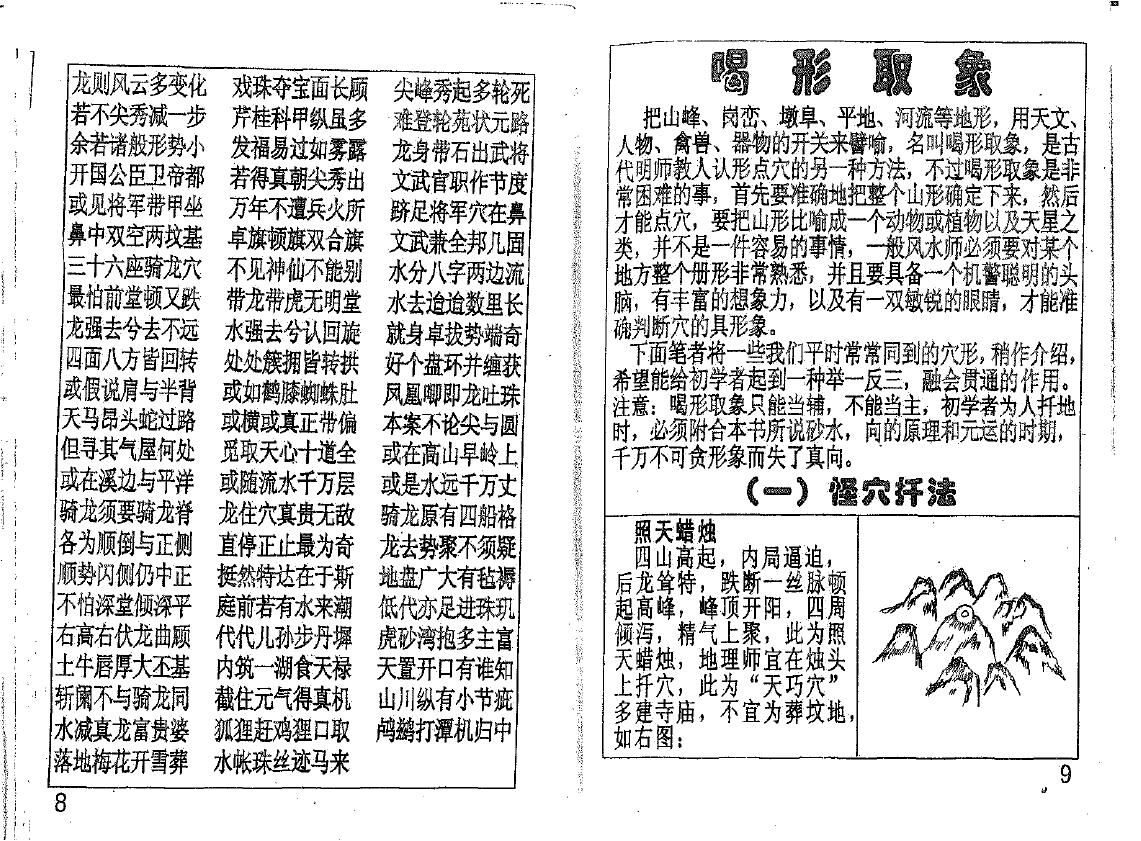 龙则风云多变化 戏珠夺宝面长顾 尖峰秀起多轮死
若不尖秀减一步 芹桂科甲纵虽多 难登轮苑状元路
余若诸般形势小 发福易过如雾露 龙身带石出武将
开国公臣卫帝都 若得真朝尖秀出 文武官职作节度
或见将军带甲坐 万年不遭兵火所 跻足将军穴在鼻
鼻中双空两坟基 卓旗顿旗双合旗 文武兼全邦几固
三十六座骑龙穴 不见神仙不能别 水分八字两边流
最怕前堂顿又跌 带龙带虎无明堂 水去迢迢数里长
龙强去兮去不远 水强去兮认回旋 就身卓拔势端奇
四面八方皆回转 处处簇拥皆转拱 好个盘环并缠获
或假说肩与半背 或如鹤膝蜘蛛肚 凤凰唧即龙吐珠
天马昂头蛇过路 或横或真正带偏 本案不论尖与圆
但寻其气屋何处 觅取天心十道全 或在高山早岭上
或在溪边与平洋 或随流水千万层 或是水远千万丈
骑龙须要骑龙脊 龙住穴真贵无敌 骑龙原有四船格
各为顺倒与正侧 直停正止最为奇 龙去势聚不须疑
顺势闪侧仍中正 挺然特达在于斯 地盘广大有毡褥
不怕深堂倾深平 庭前若有水来潮 低代亦足进珠玑
右高右伏龙曲顾 代代儿孙步丹墀 虎砂湾抱多主富
土牛唇厚大丕基 内筑一湖食天禄 天置开口有谁知
斩阑不与骑龙同 截住元气得真机 山川纵有小节疵
水减真龙富贵婆 狐狸赶鸡狸口取 鸬鹚打潭机归中
落地梅花开雪葬 水帐珠丝迹马来
8
喝形取象
把山峰、岗峦、墩阜、平地、河流等地形，用天文、
人物、禽兽、器物的开关来譬喻，名叫喝形取象，是古
代明师教人认形点穴的另一种方法，不过喝形取象是非
常困难的事，首先要准确地把整个山形确定下来，然后
才能点穴，要把山形比喻成一个动物或植物以及天星之
类，并不是一件容易的事情，一般风水师必须要对某个
地方整个册形非常熟悉，并且要具备一个机警聪明的头
脑，有丰富的想象力，以及有一双敏锐的眼睛，才能准
确判断穴的具形象。
下面笔者将一些我们平时常常同到的穴形，稍作介绍，
希望能给初学者起到一种举一反三，融会贯通的作用。
注意：喝形取象只能当辅，不能当主，初学者为人扦地
时，必须附合本书所说砂水，向的原理和元运的时期，
千万不可贪形象而失了真向。
（一）怪穴扦法
照天蜡烛
四山高起，内局逼迫，
后龙耸特，跌断一丝脉顿
起高峰，峰顶开阳，四周
倾泻，精气上聚，此为照
天蜡烛，地理师宜在烛头
上扦穴，此为“天巧穴”
多建寺庙，不宜为葬坟地，
如右图：
9